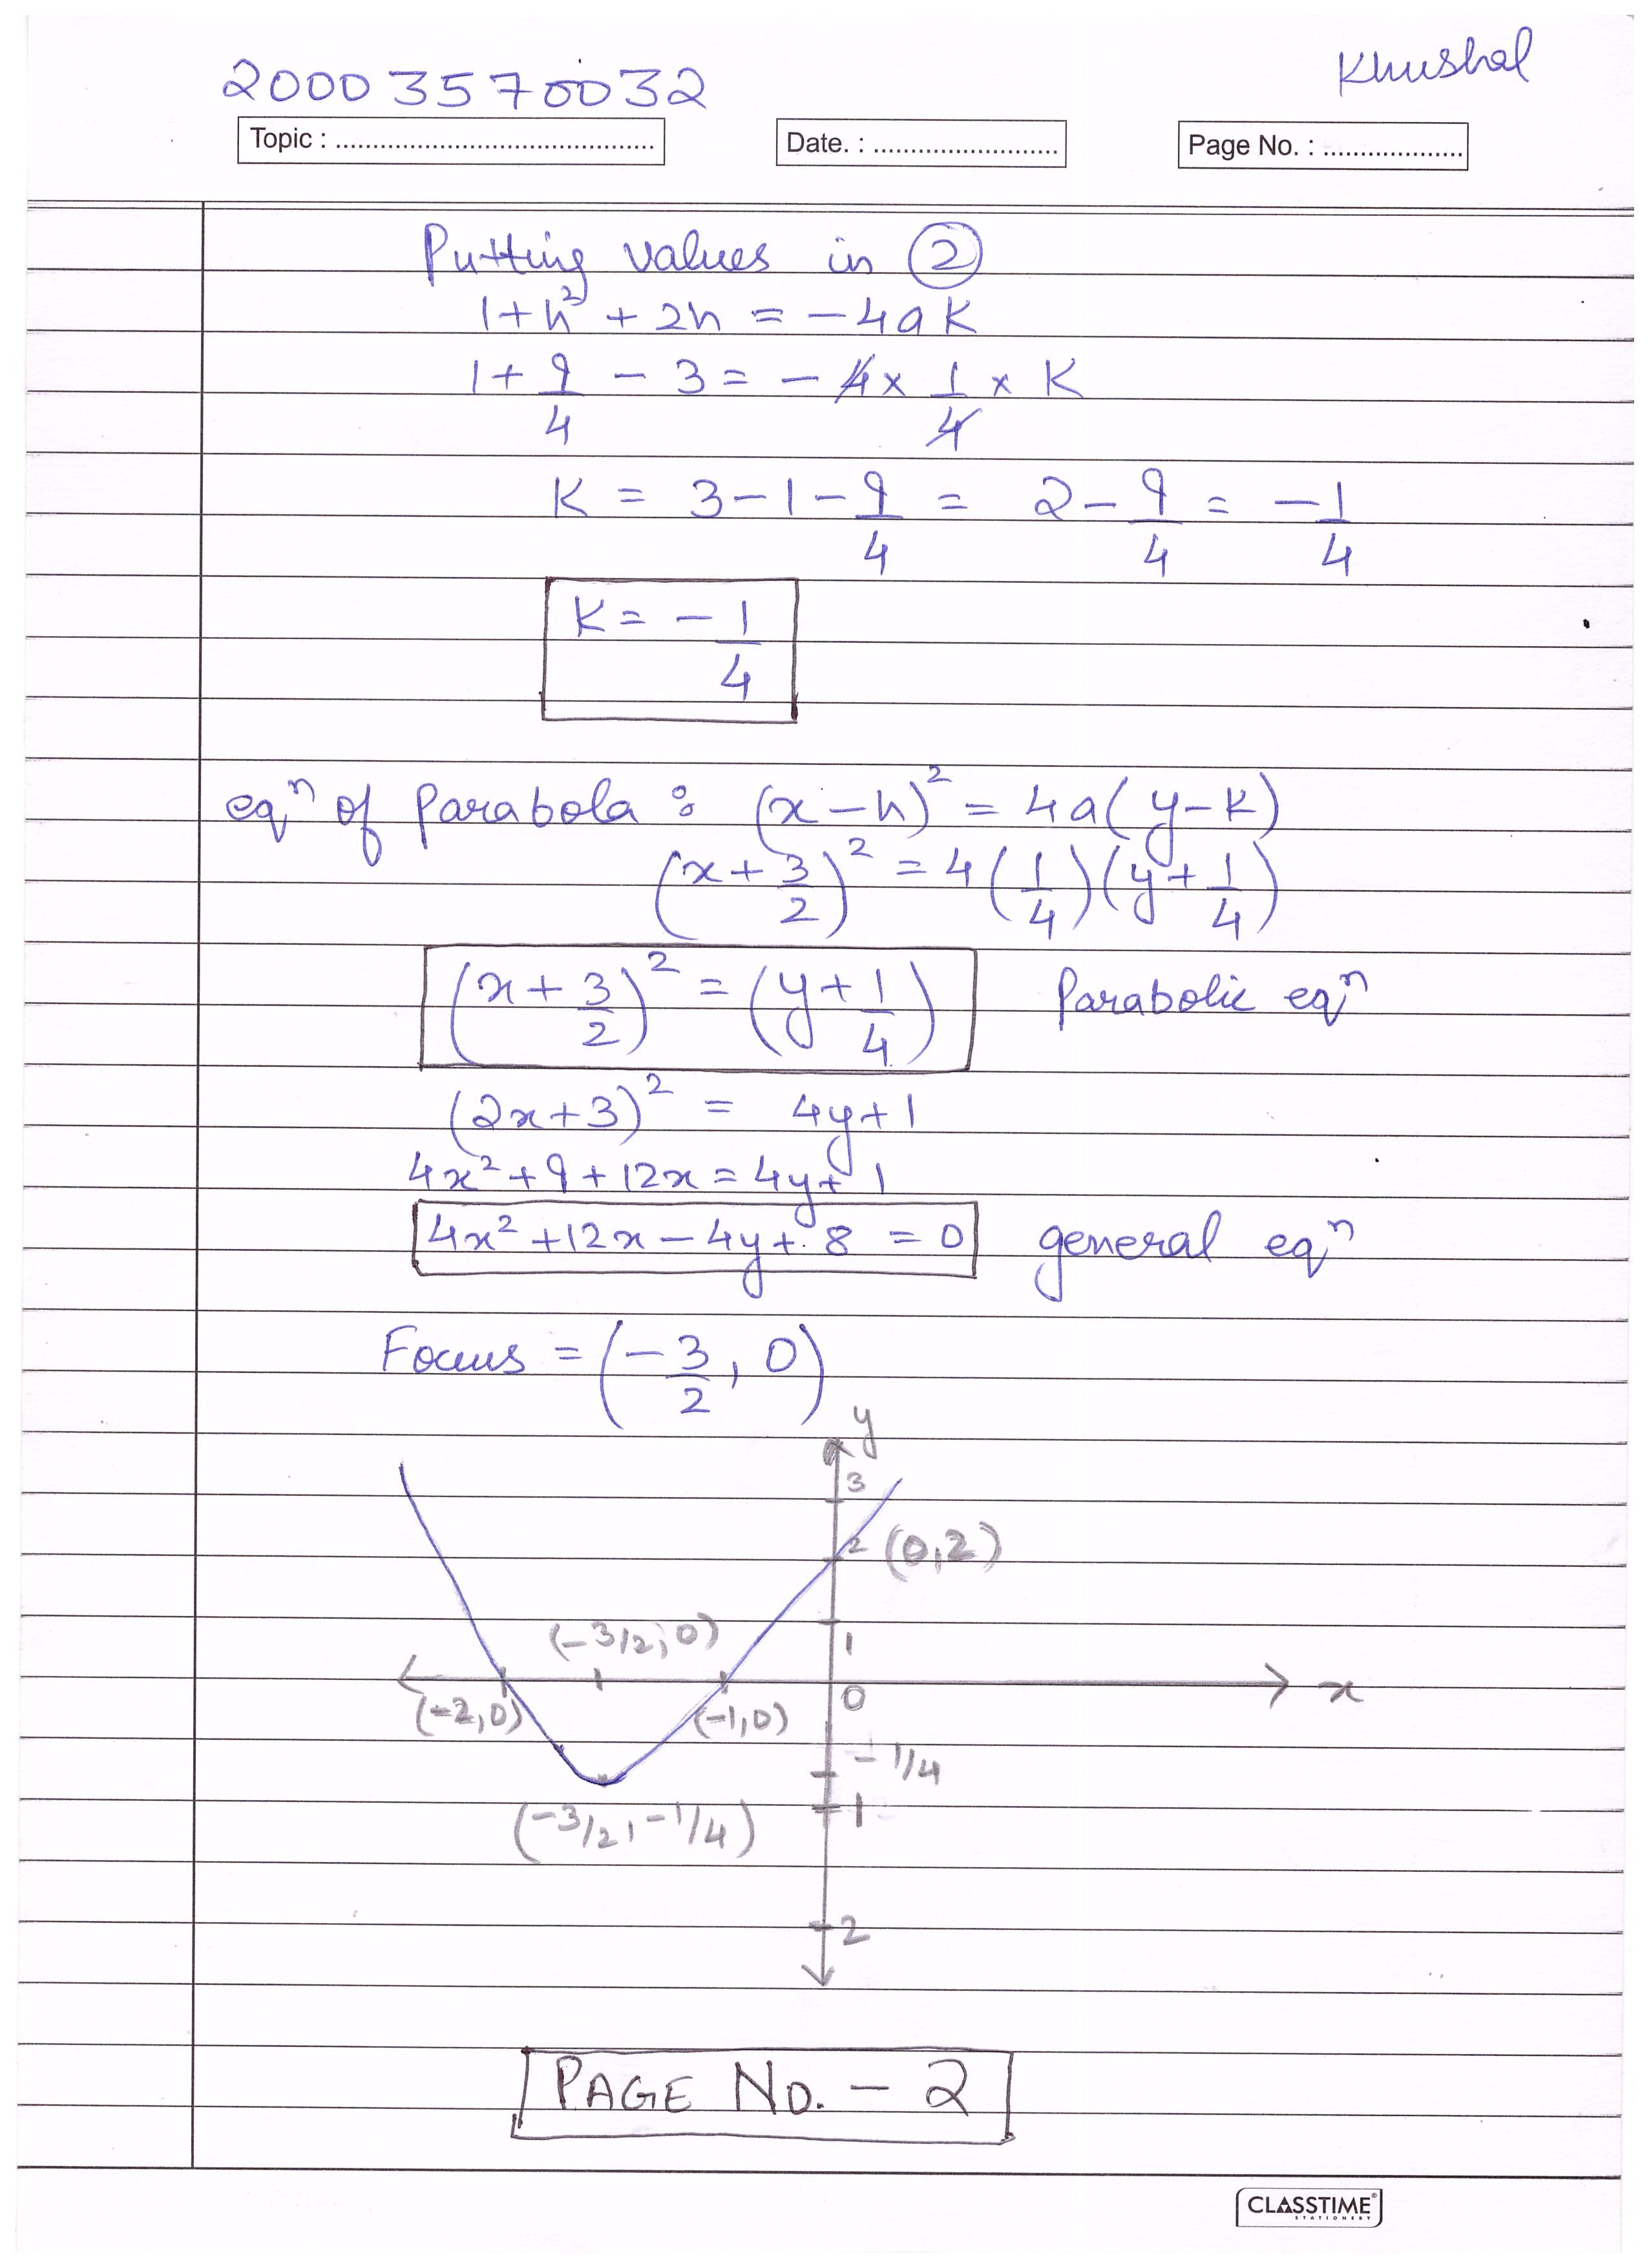 20003570032
Khushal
Topic : ...........................................
Date. : .........................
Page No. : ...................
Putting values in ②
1+h² + 2h = -4ak
1 + 9/4 - 3 = - 4 x 1/4 x K
K = 3-1-9/4 = 2-9/4 = -1/4
K = -1/4
eqⁿ of parabola : (x-h)² = 4a(y-k)
(x+3/2)² = 4(1/4)(y+1/4)
(x+3/2)² = (y+1/4) Parabolic eqⁿ
(2x+3)² = 4y+1
4x²+9+12x = 4y+1
4x²+12x-4y+8 = 0 general eqⁿ
Focus = (-3/2, 0)
y
3
2 (0,2)
(-3/2, 0)
1
x
0
(-2,0) (-1,0)
-1/4
(-3/2, -1/4)
-1
-2
PAGE NO. - 2
CLASSTIME®
STATIONERY